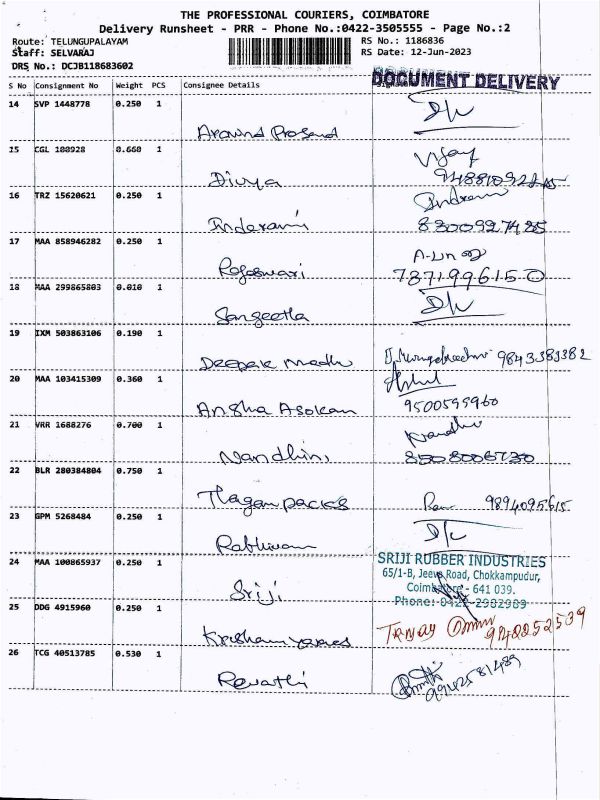 THE PROFESSIONAL COURIERS, COIMBATORE
Delivery Runsheet - PRR - Phone No.:0422-3505555 - Page No.:2
Route: TELUNGUPALAYAM RS No.: 1186836
Staff: SELVARAJ RS Date: 12-Jun-2023
DRS No.: DCJB118683602
DOCUMENT DELIVERY
S No Consignment No Weight PCS Consignee Details
14 SVP 1448778 0.250 1
Aravind Prasand
15 CGL 188928 0.660 1
Divya
16 TRZ 15620621 0.250 1
Inderani
8300927485
17 MAA 858946282 0.250 1
Rajeswari
7871996150
18 MAA 299865803 0.010 1
Sangeetha
19 IXM 503863106 0.190 1
Deepak Madhu 9843383382
20 MAA 103415309 0.360 1
Ansha Asokan 9500599960
21 VRR 1688276 0.700 1
Nandhini
22 BLR 280384804 0.750 1
Thagam packs 9894095615
23 GPM 5268484 0.250 1
24 MAA 100865937 0.250 1
Sriji
SRIJI RUBBER INDUSTRIES
65/1-B, Jeeva Road, Chokkampudur,
Coimbatore - 641 039.
Phone: 0422-2982989
25 DDG 4915960 0.250 1
26 TCG 40513785 0.530 1
Revathi